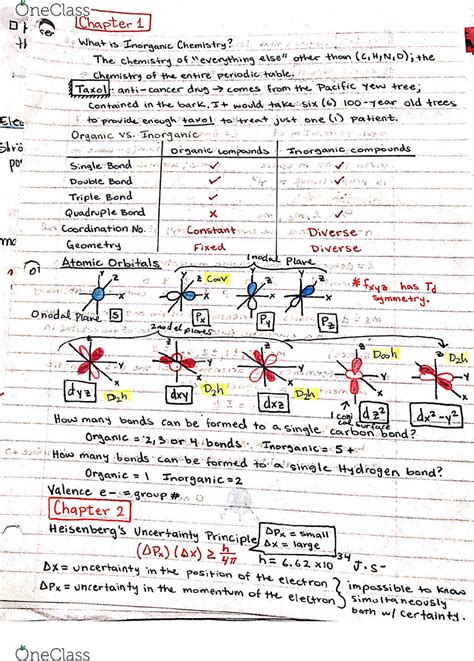 OneClass
Chapter 1
What is Inorganic Chemistry?
The chemistry of "everything else" other than (C,H,N,O); the
chemistry of the entire periodic table.
Taxol: anti-cancer drug → comes from the Pacific Yew tree;
contained in the bark. It would take six (6) 100-year old trees
to provide enough taxol to treat just one (1) patient.
Organic vs. Inorganic
organic compounds Inorganic compounds
Single Bond ✓ ✓
Double Bond ✓ ✓
Triple Bond ✓ ✓
Quadruple Bond × ✓
Coordination No. Constant Diverse
Geometry Fixed Diverse
Atomic Orbitals 1 nodal plane
Z Y X
C∞v
* fxyz has Td
symmetry.
0 nodal plane S Px Py Pz
2 nodal planes
D∞h D2h
dyz D2h dxy D2h dxz D2h dz² dx²-y²
1 conical surface
How many bonds can be formed to a single carbon bond?
Organic = 2, 3 or 4 bonds. Inorganic = 5+
How many bonds can be formed to a single Hydrogen bond?
Organic = 1 Inorganic = 2
Valence e- = group #
Chapter 2
Heisenberg's Uncertainty Principle
ΔPx = small
Δx = large
(ΔPx)(Δx) ≥ h/4π
h = 6.62 x10 34 J.s-
Δx = uncertainty in the position of the electron
ΔPx = uncertainty in the momentum of the electron
impossible to know
simultaneously
both w/ certainty.
OneClass